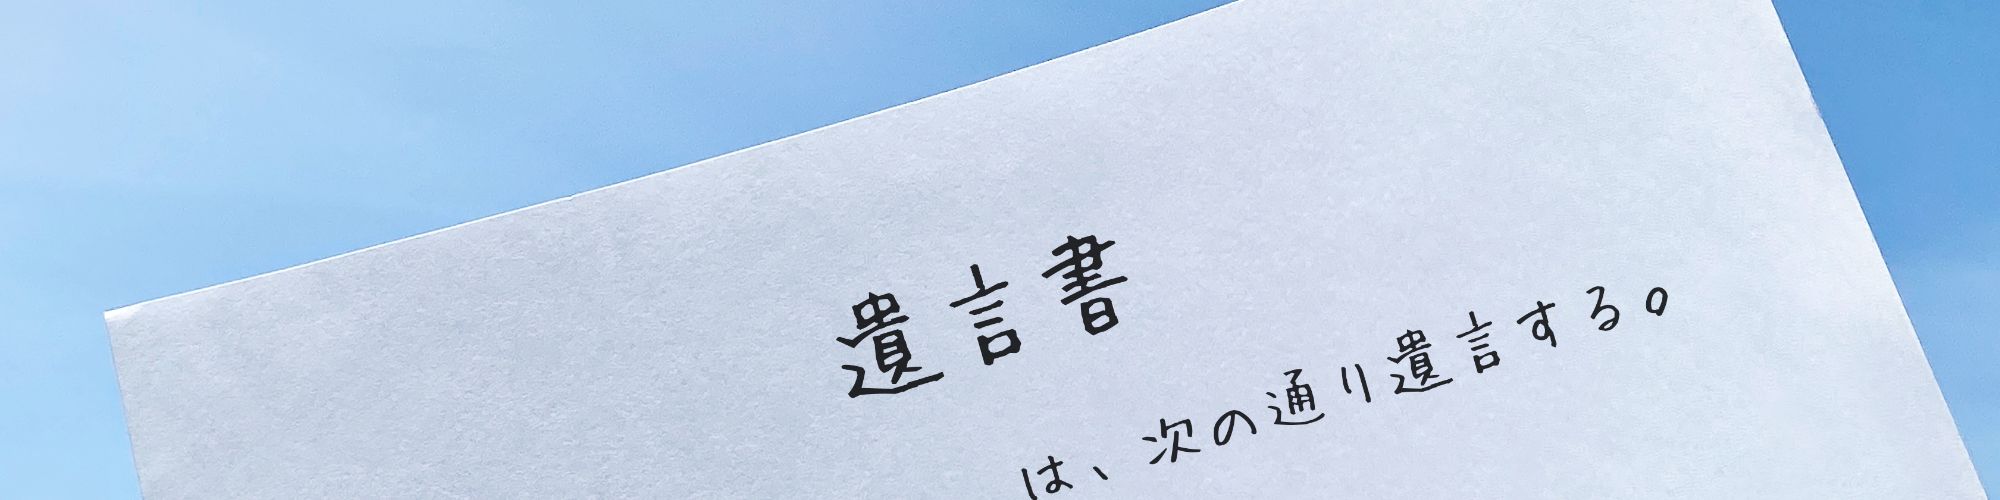 遺言書
は、次の通り遺言する。